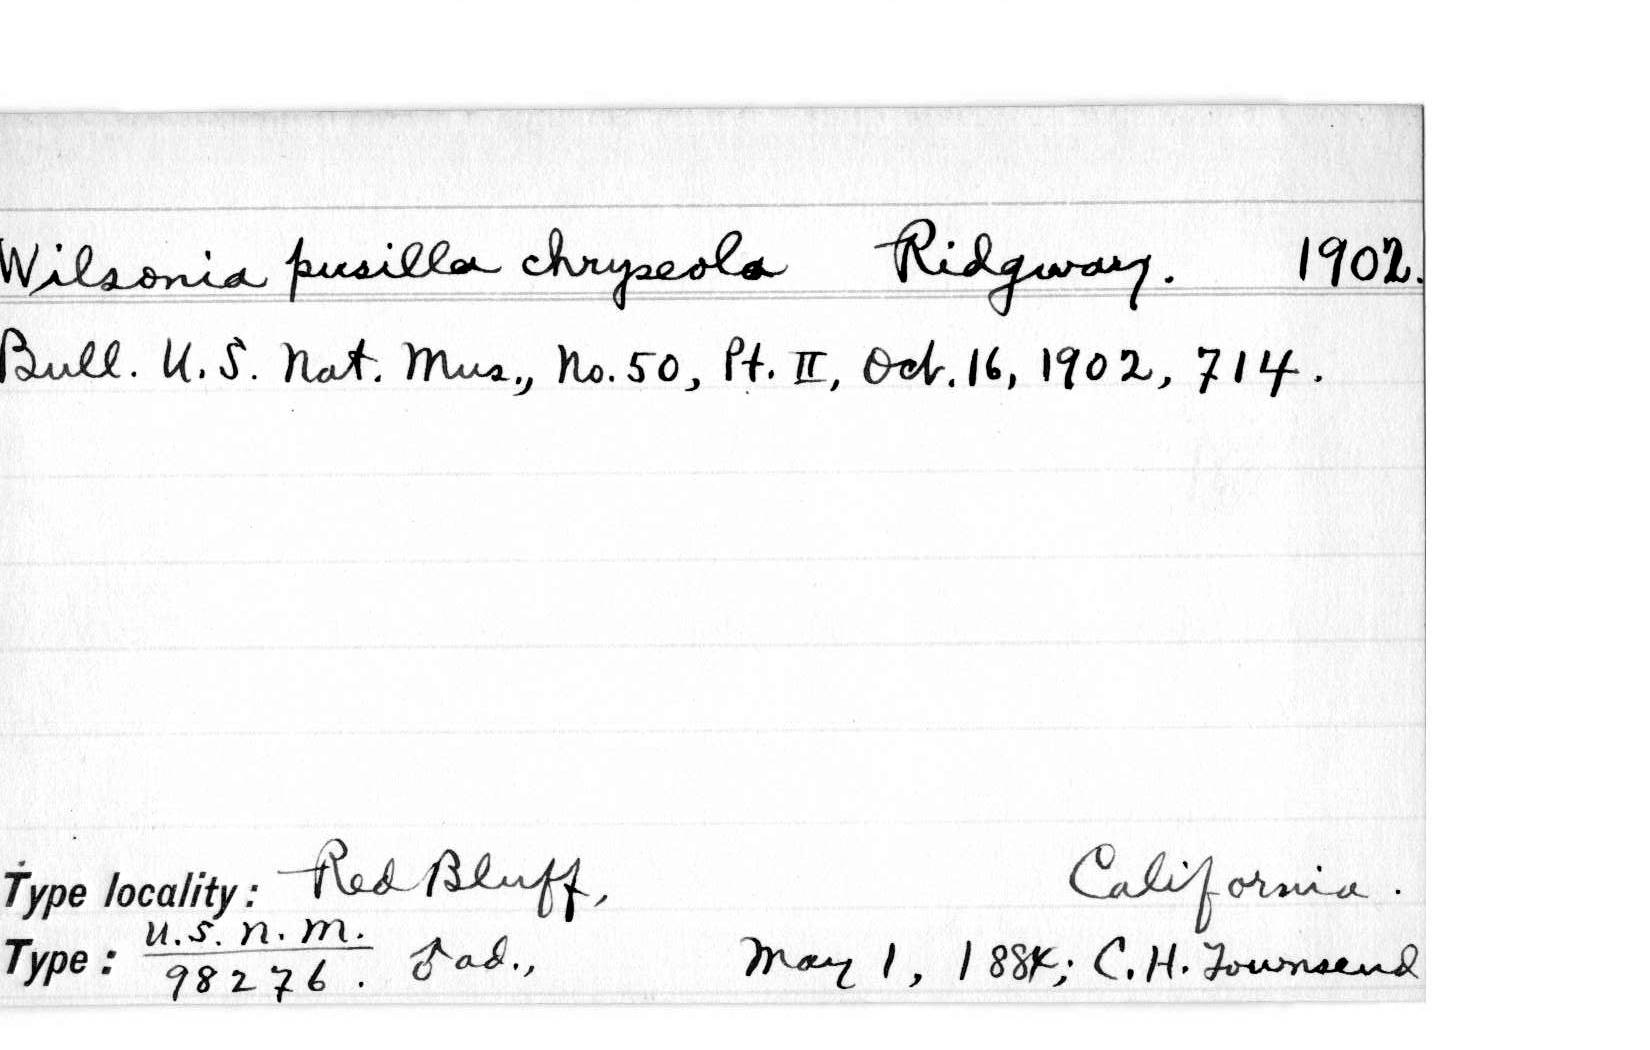 Wilsonia pusilla chryseola Ridgway. 1902.
Bull. U.S. Nat. Mus., No. 50, Pt. II, Oct. 16, 1902, 714.
Type locality: Red Bluff, California.
Type: U.S.N.M. 98276. ♂ ad., May 1, 1884; C.H. Townsend